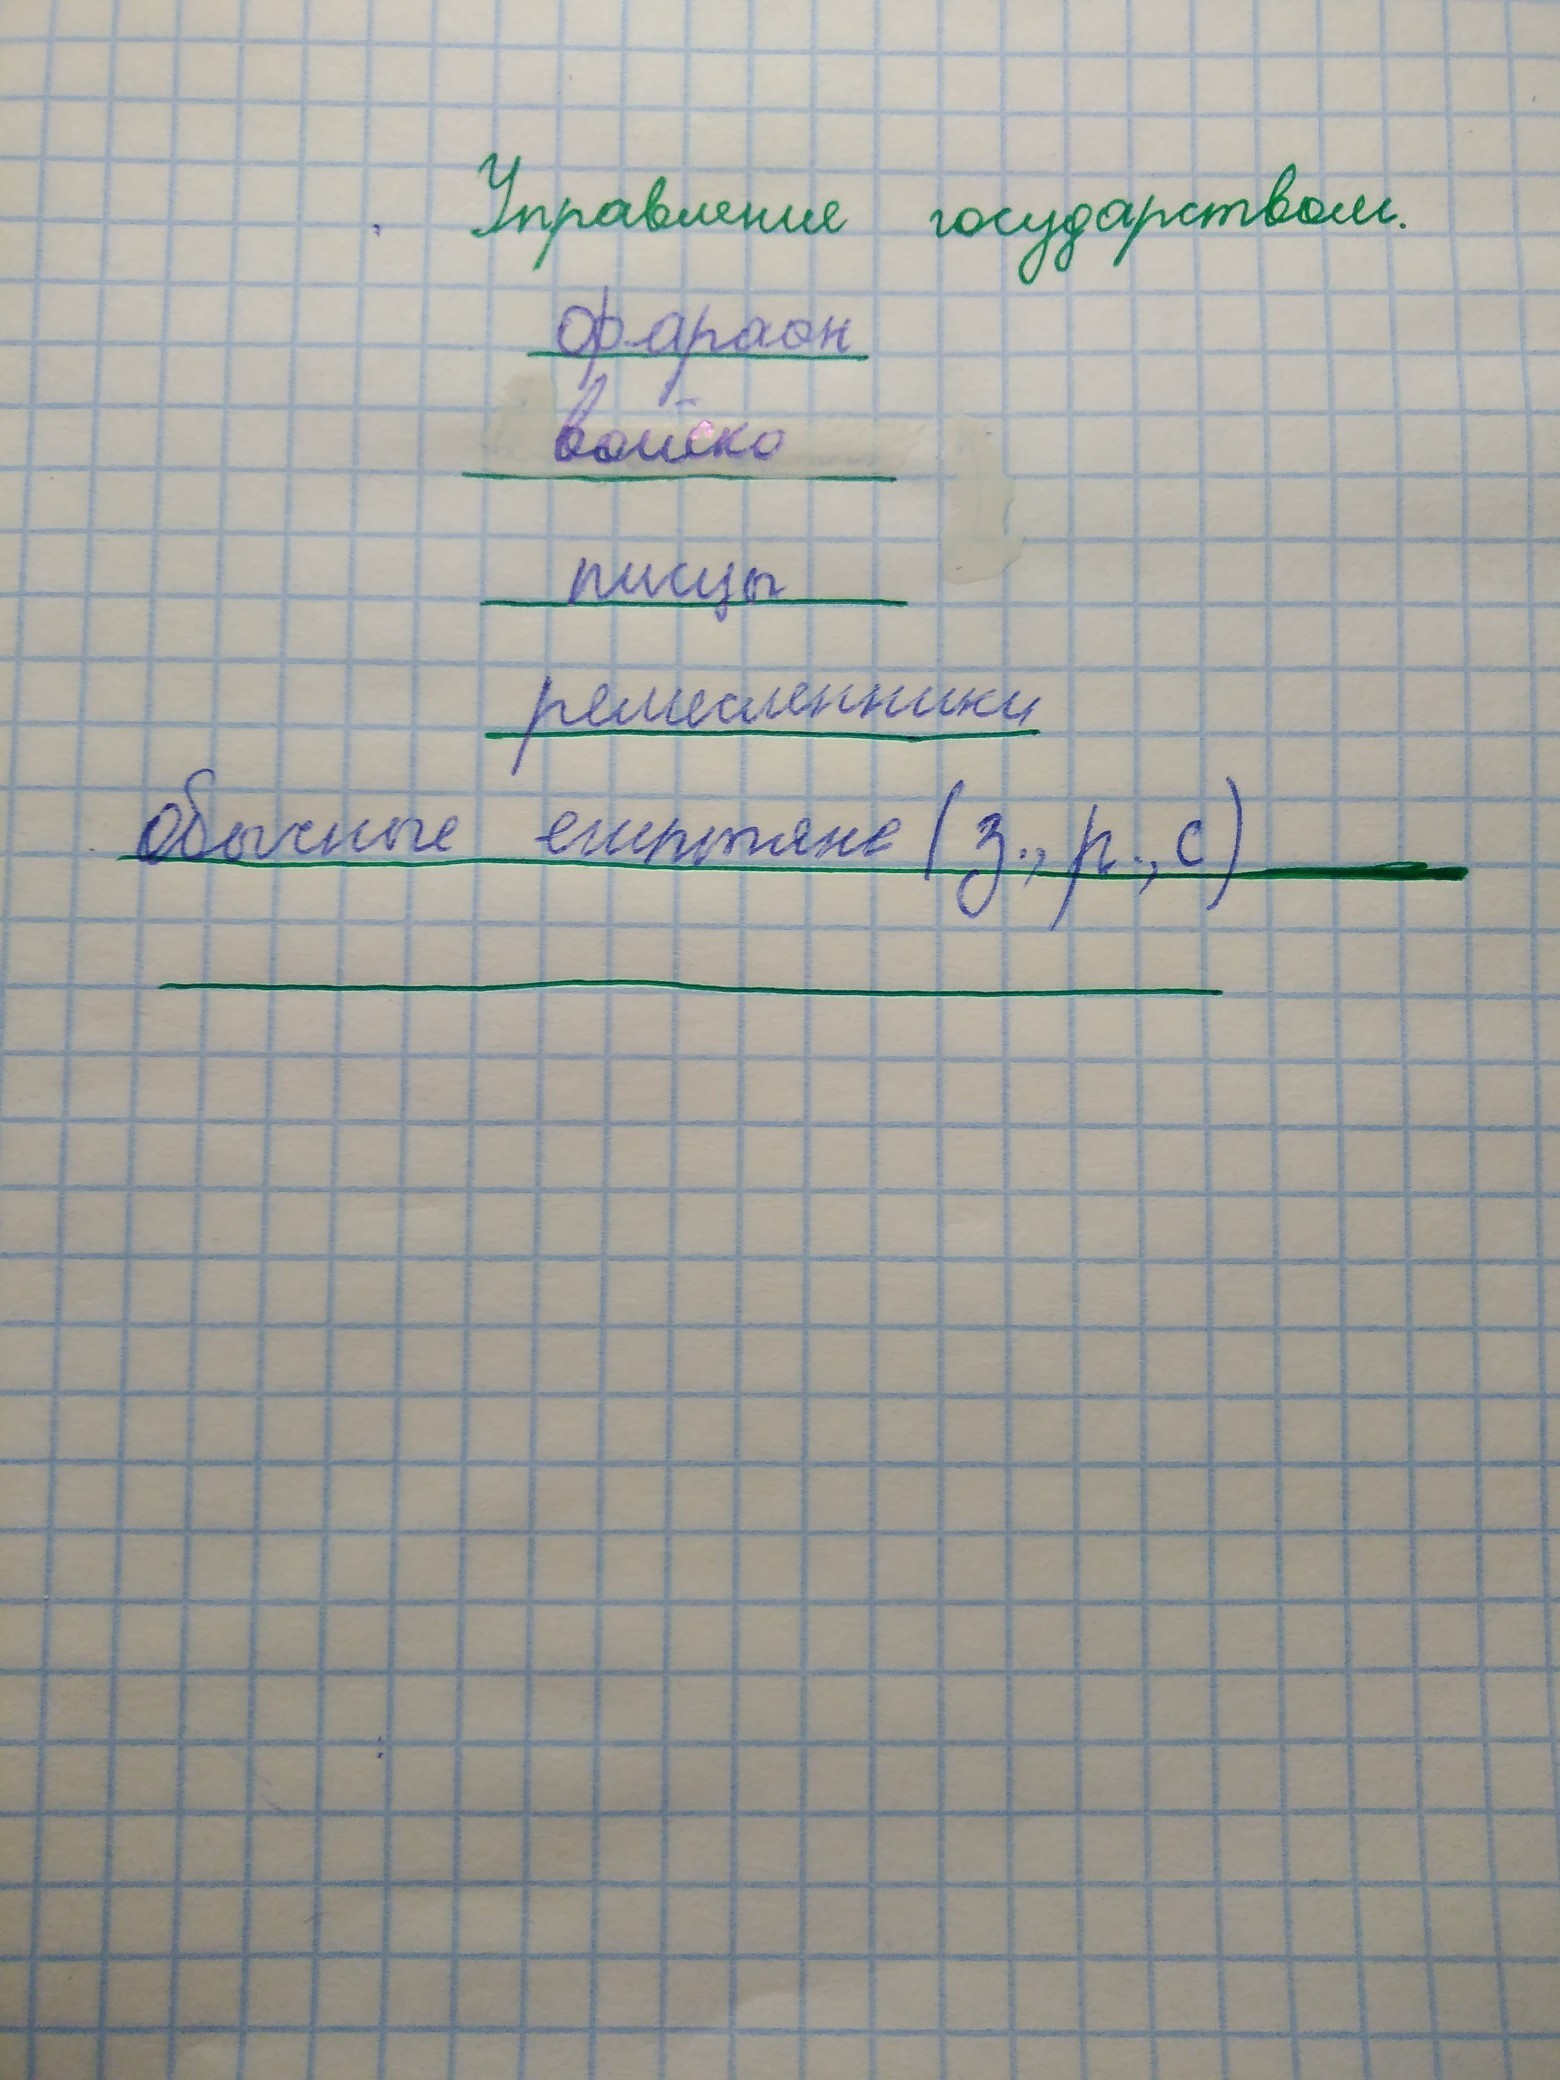 Управление государством.
фараон
войско
писцы
ремесленники
обычные египтяне (з., р., с)